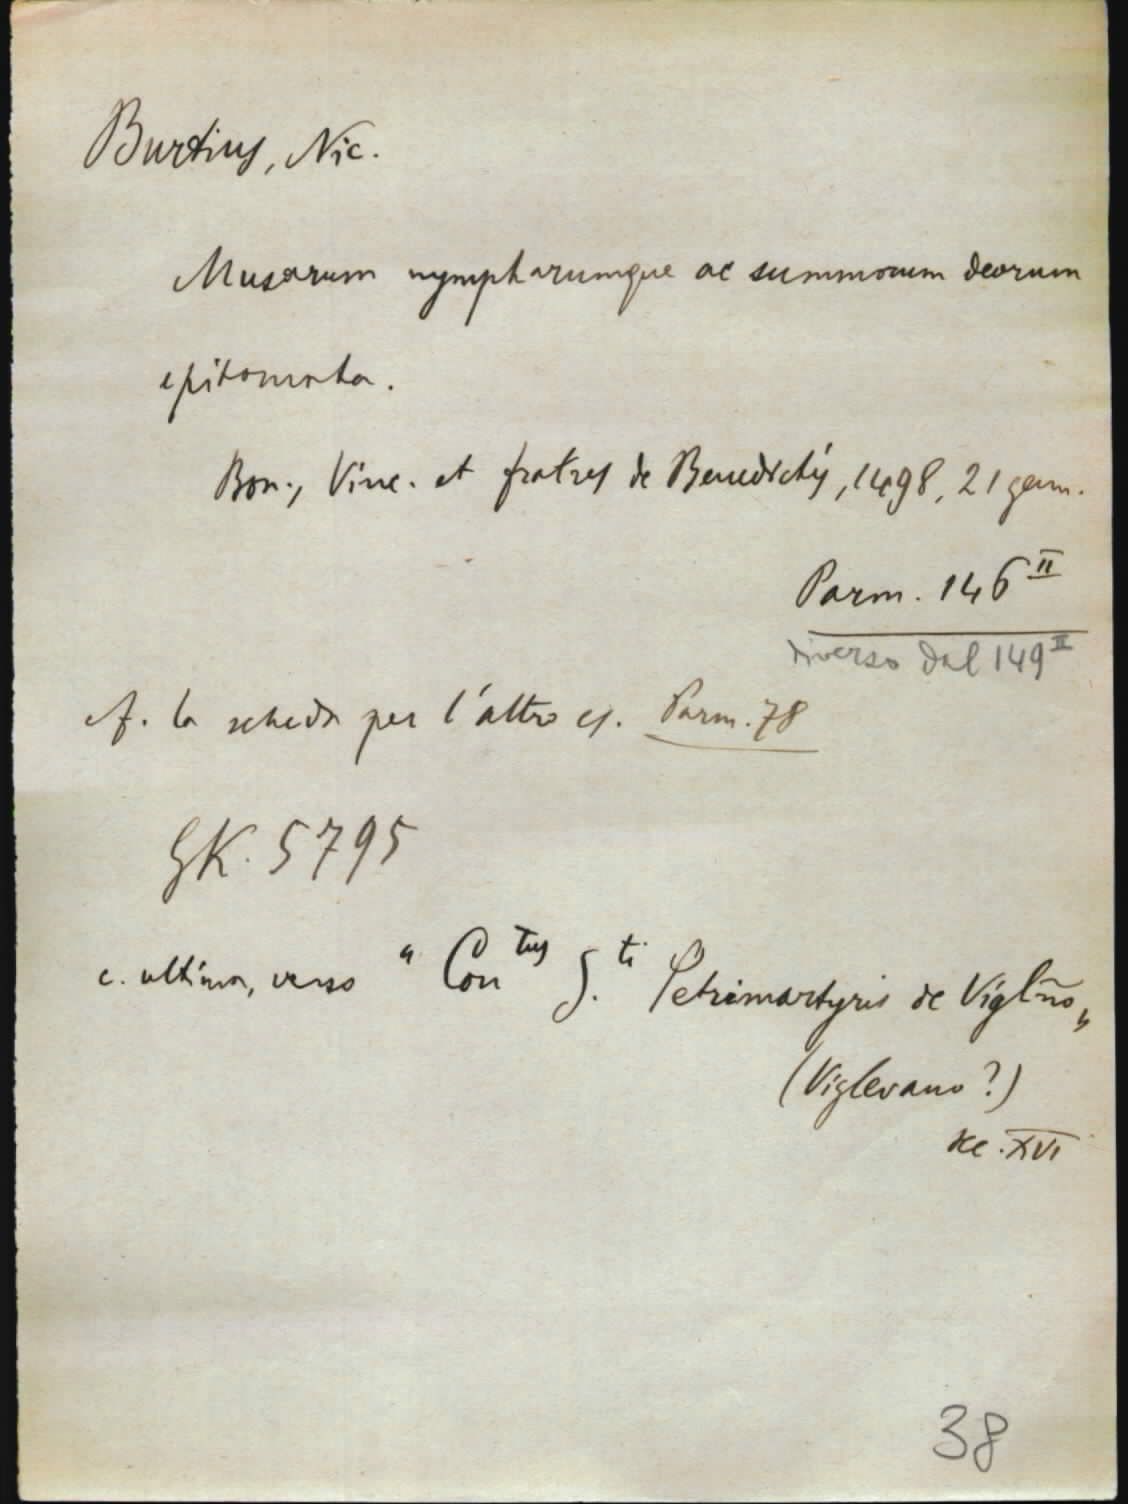 Burtius, Nic.
Musarum nympharumque ac summorum deorum
epitomata.
Bon., Vinc. et fratres de Benedictis, 1498, 21 genn.
Parm. 146 II
diverso dal 149 II
cf. la scheda per l'altro es. Parm. 78
GK. 5795
c. ultima, verso "Con tus S. ti Petrimartyris de Vigl̃ño"
(Viglevano?)
sec. XVI
38